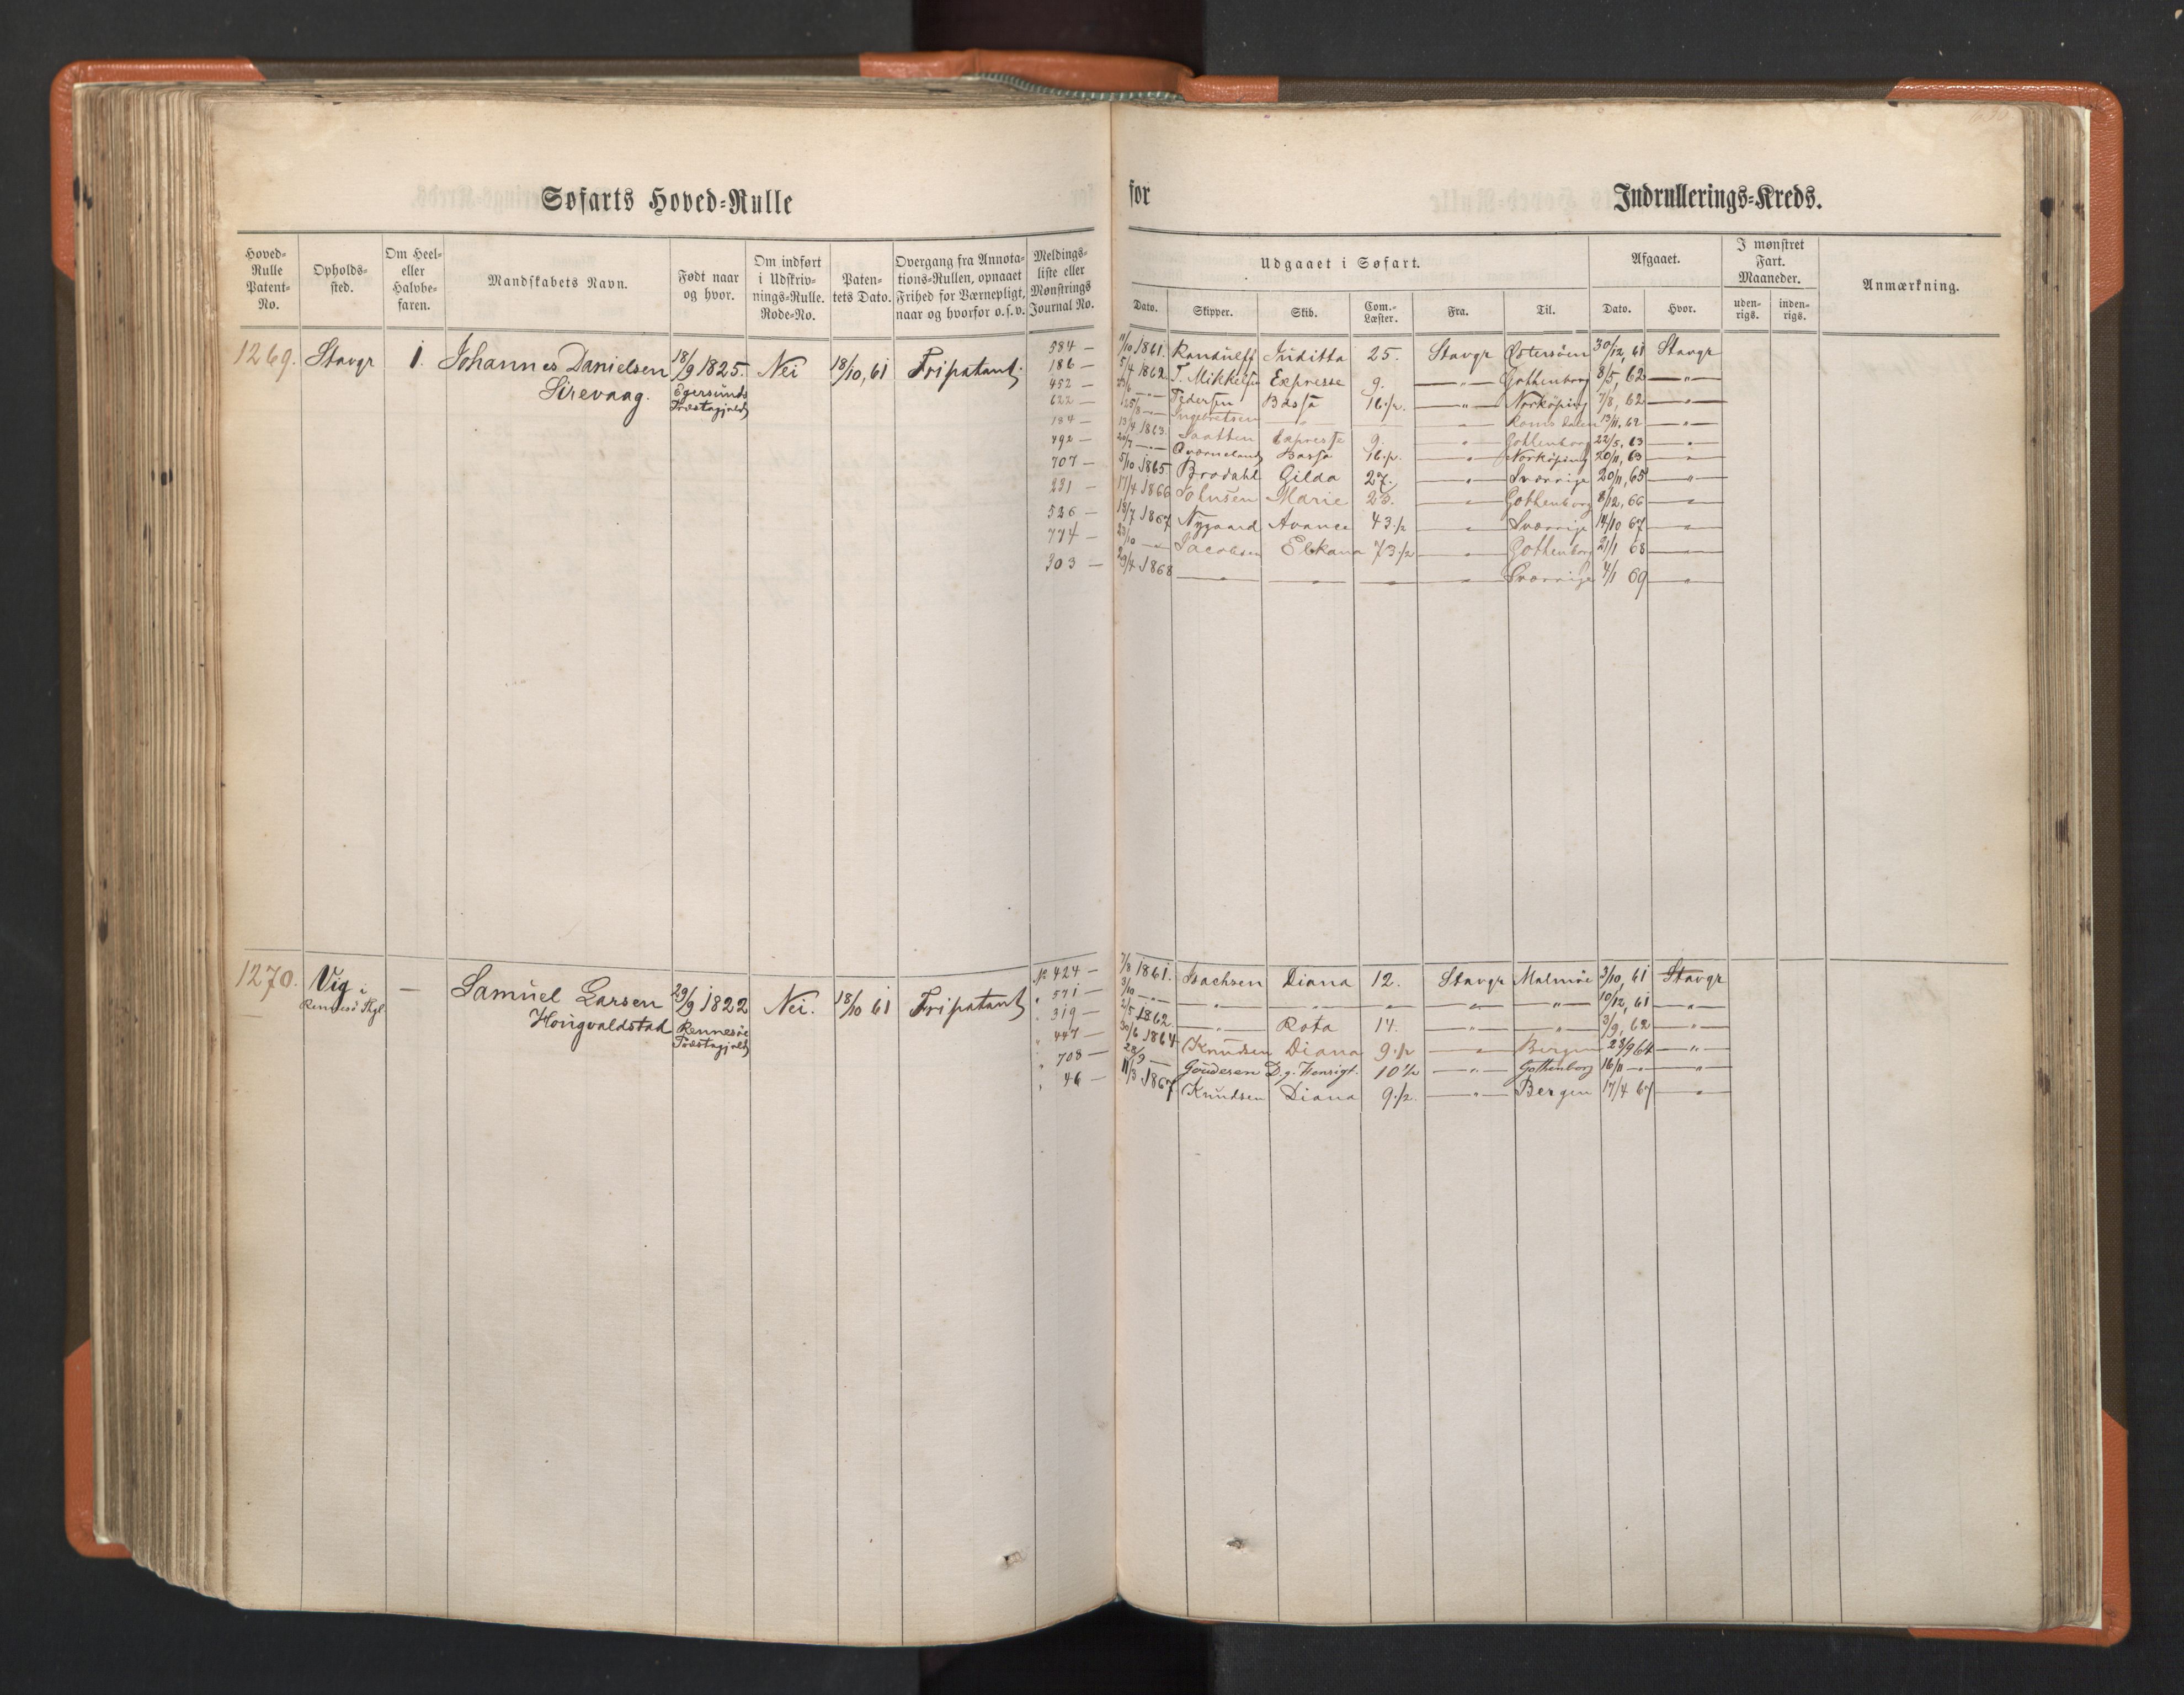 Søfarts Hoved-Rulle
for
Indrullerings-Kreds.
Hoved-Rulle Patent-No.
Opholds-sted.
Om Heel- eller Halvbe-faren.
Mandskabets Navn.
Født naar og hvor.
Om indført i Udskriv-nings-Rulle. Rode-No.
Paten-tets Dato.
Overgang fra Annota-tions-Rullen, opnaaet Frihed for Værnepligt, naar og hvorfor o.s.v.
Meldings-liste eller Mønstrings Journal No.
Udgaaet i Søfart.
Dato.
Skipper.
Skib.
Com.-Læster.
Fra.
Til.
Afgaaet.
Dato.
Hvor.
I mønstret Fart. Maaneder.
uden-rigs.
inden-rigs.
Anmærkning.
1269. Stavgr 1. Johannes Danielsen 18/9 1825. Nei 18/10, 61 Fripatent.
Sirevaag. Egersunds Præstegjeld
584 — 11/10 1861. Randulff Juditta 25. Stavgr Østersöen 30/12, 61 Stavgr
186 — 5/4 1862 T. Mikkelsen Expresse 9. — " — Gothenborg 8/5, 62 — " —
452 — Pedersen Bassa 16 1/2. — " — Norköping 7/8, 62 — " —
622 — 25/8 — Ingebretsen — " — Romsdalen 13/11, 62 — " —
184 — 13/4 1863. Saatten Expresse 9. — " — Gothenborg 22/5, 63 — " —
492 — 20/7 — " — Qværneland Bassa 16 1/2. — " — Norköping 20/11, 63 — " —
707 — 5/10 1865 Brodahl Gilda 27. — " — Sværrige 20/11, 65 — " —
231 — 17/4 1866 Johnsen Marie 23. — " — Gothenborg 8/12, 66 — " —
526 — 18/7 1867 Nygaard Avance 43 1/2 — " — Sværrige 14/10 67 — " —
774 — 23/10 — " — Jacobsen Elkana 73 1/2 — " — Gothenborg 21/1 68 — " —
303 — 29/4 1868 — " — — " — — " — — " — Sværrige 4/1 69 — " —
1270. Vig i — Samuel Larsen 29/9 1822 Nei. 18/10 61 Fripatent
Rennesö Pgl. Hougvaldstad Rennesöe Præstegjeld
p. 424 — 7/8 1861. Isachsen Diana 12. Stavgr Malmøe 3/10, 61 Stavgr
" 571 — 3/10 — " — — " — — " — — " — — " — — " — 10/12, 61 — " —
" 319 — 2/5 1862. — " — Rota 14. — " — — " — 3/9, 62 — " —
" 447 — 30/6 1864 Knudsen Diana 9 1/2 — " — Bergen 23/9 64 — " —
" 708 — 28/9 — Goudesen D. g. Hensigt. 10 1/2 — " — Gothenborg 16/11 — " — — " —
" 46 — 11/3 1867 Knudsen Diana 9 1/2. — " — Bergen 17/4 67 — " —